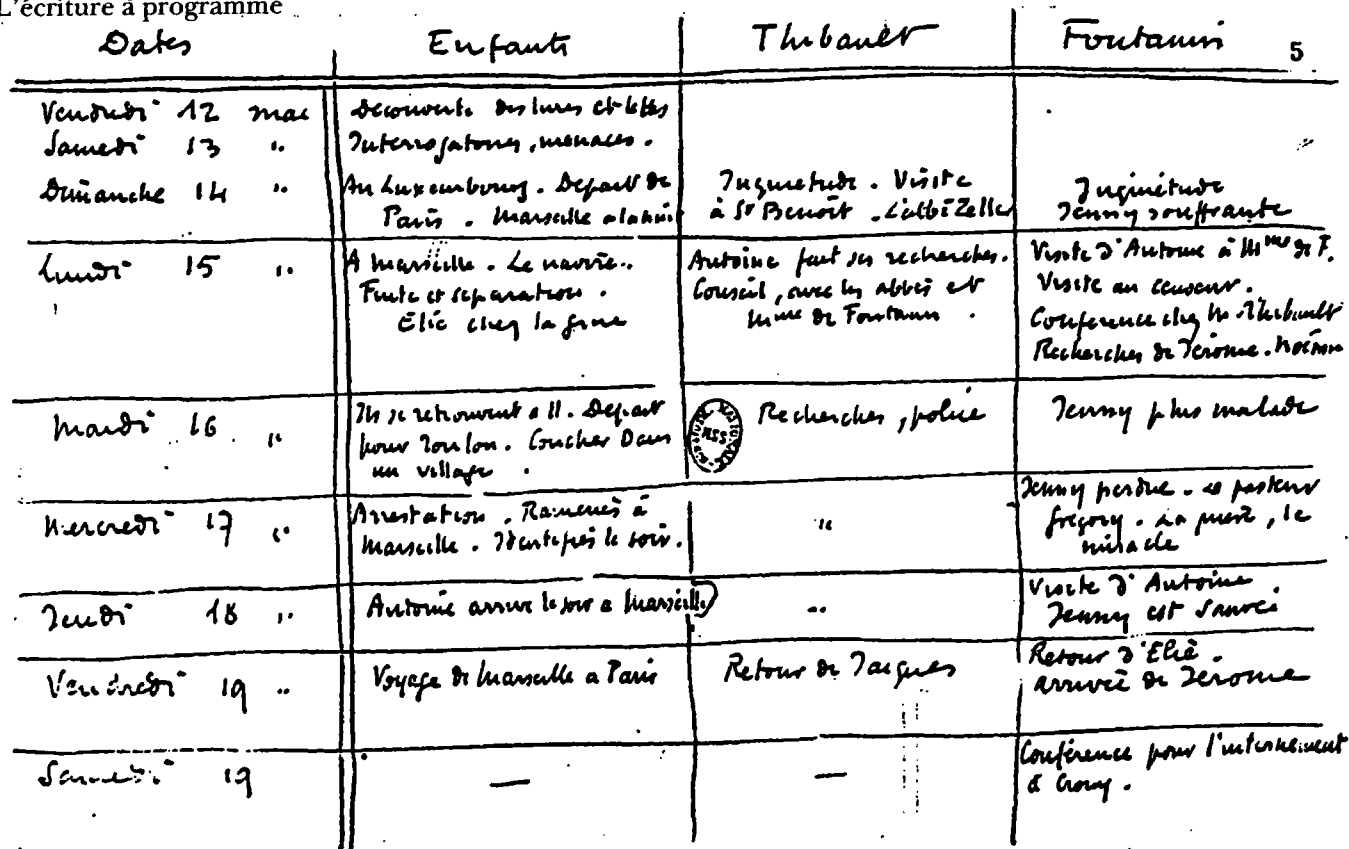 L'écriture à programme
Dates Enfants Thibault Fontanin 5
Vendredi 12 mai Découverte des livres et lettres
Samedi 13 " Interrogatoires, menaces.
Dimanche 14 " Au Luxembourg. Départ de Paris. Marseille
Inquiétude. Visite
à St Benoît. L'abbé Zeller
Inquiétude
Jenny souffrante
Lundi 15 " A Marseille. Le navire.
Fuite et séparation.
Elie chez la grue
Antoine fait ses recherches.
Conseil, avec les abbés et
Mme de Fontanin.
Visite d'Antoine à Mme de F.
Visite au censeur.
Conférence chez M. Thibault
Recherches de Jérome. Noémie
Mardi 16 " Ils se retrouvent à M. Départ
pour Toulon. Coucher dans
un village.
Recherches, police
Jenny plus malade
Mercredi 17 " Arrestation. Ramenés à
Marseille. Identifiés le soir.
"
Jenny perdue. Le pasteur
Gregory. La prière, le
miracle
Jeudi 18 " Antoine arrive le soir à Marseille
"
Visite d'Antoine
Jenny est sauvée
Vendredi 19 " Voyage de Marseille à Paris
Retour de Jacques
Retour d'Elie.
arrivée de Jérome
Samedi 19 — —
Conférence pour l'internement
à Crouy.